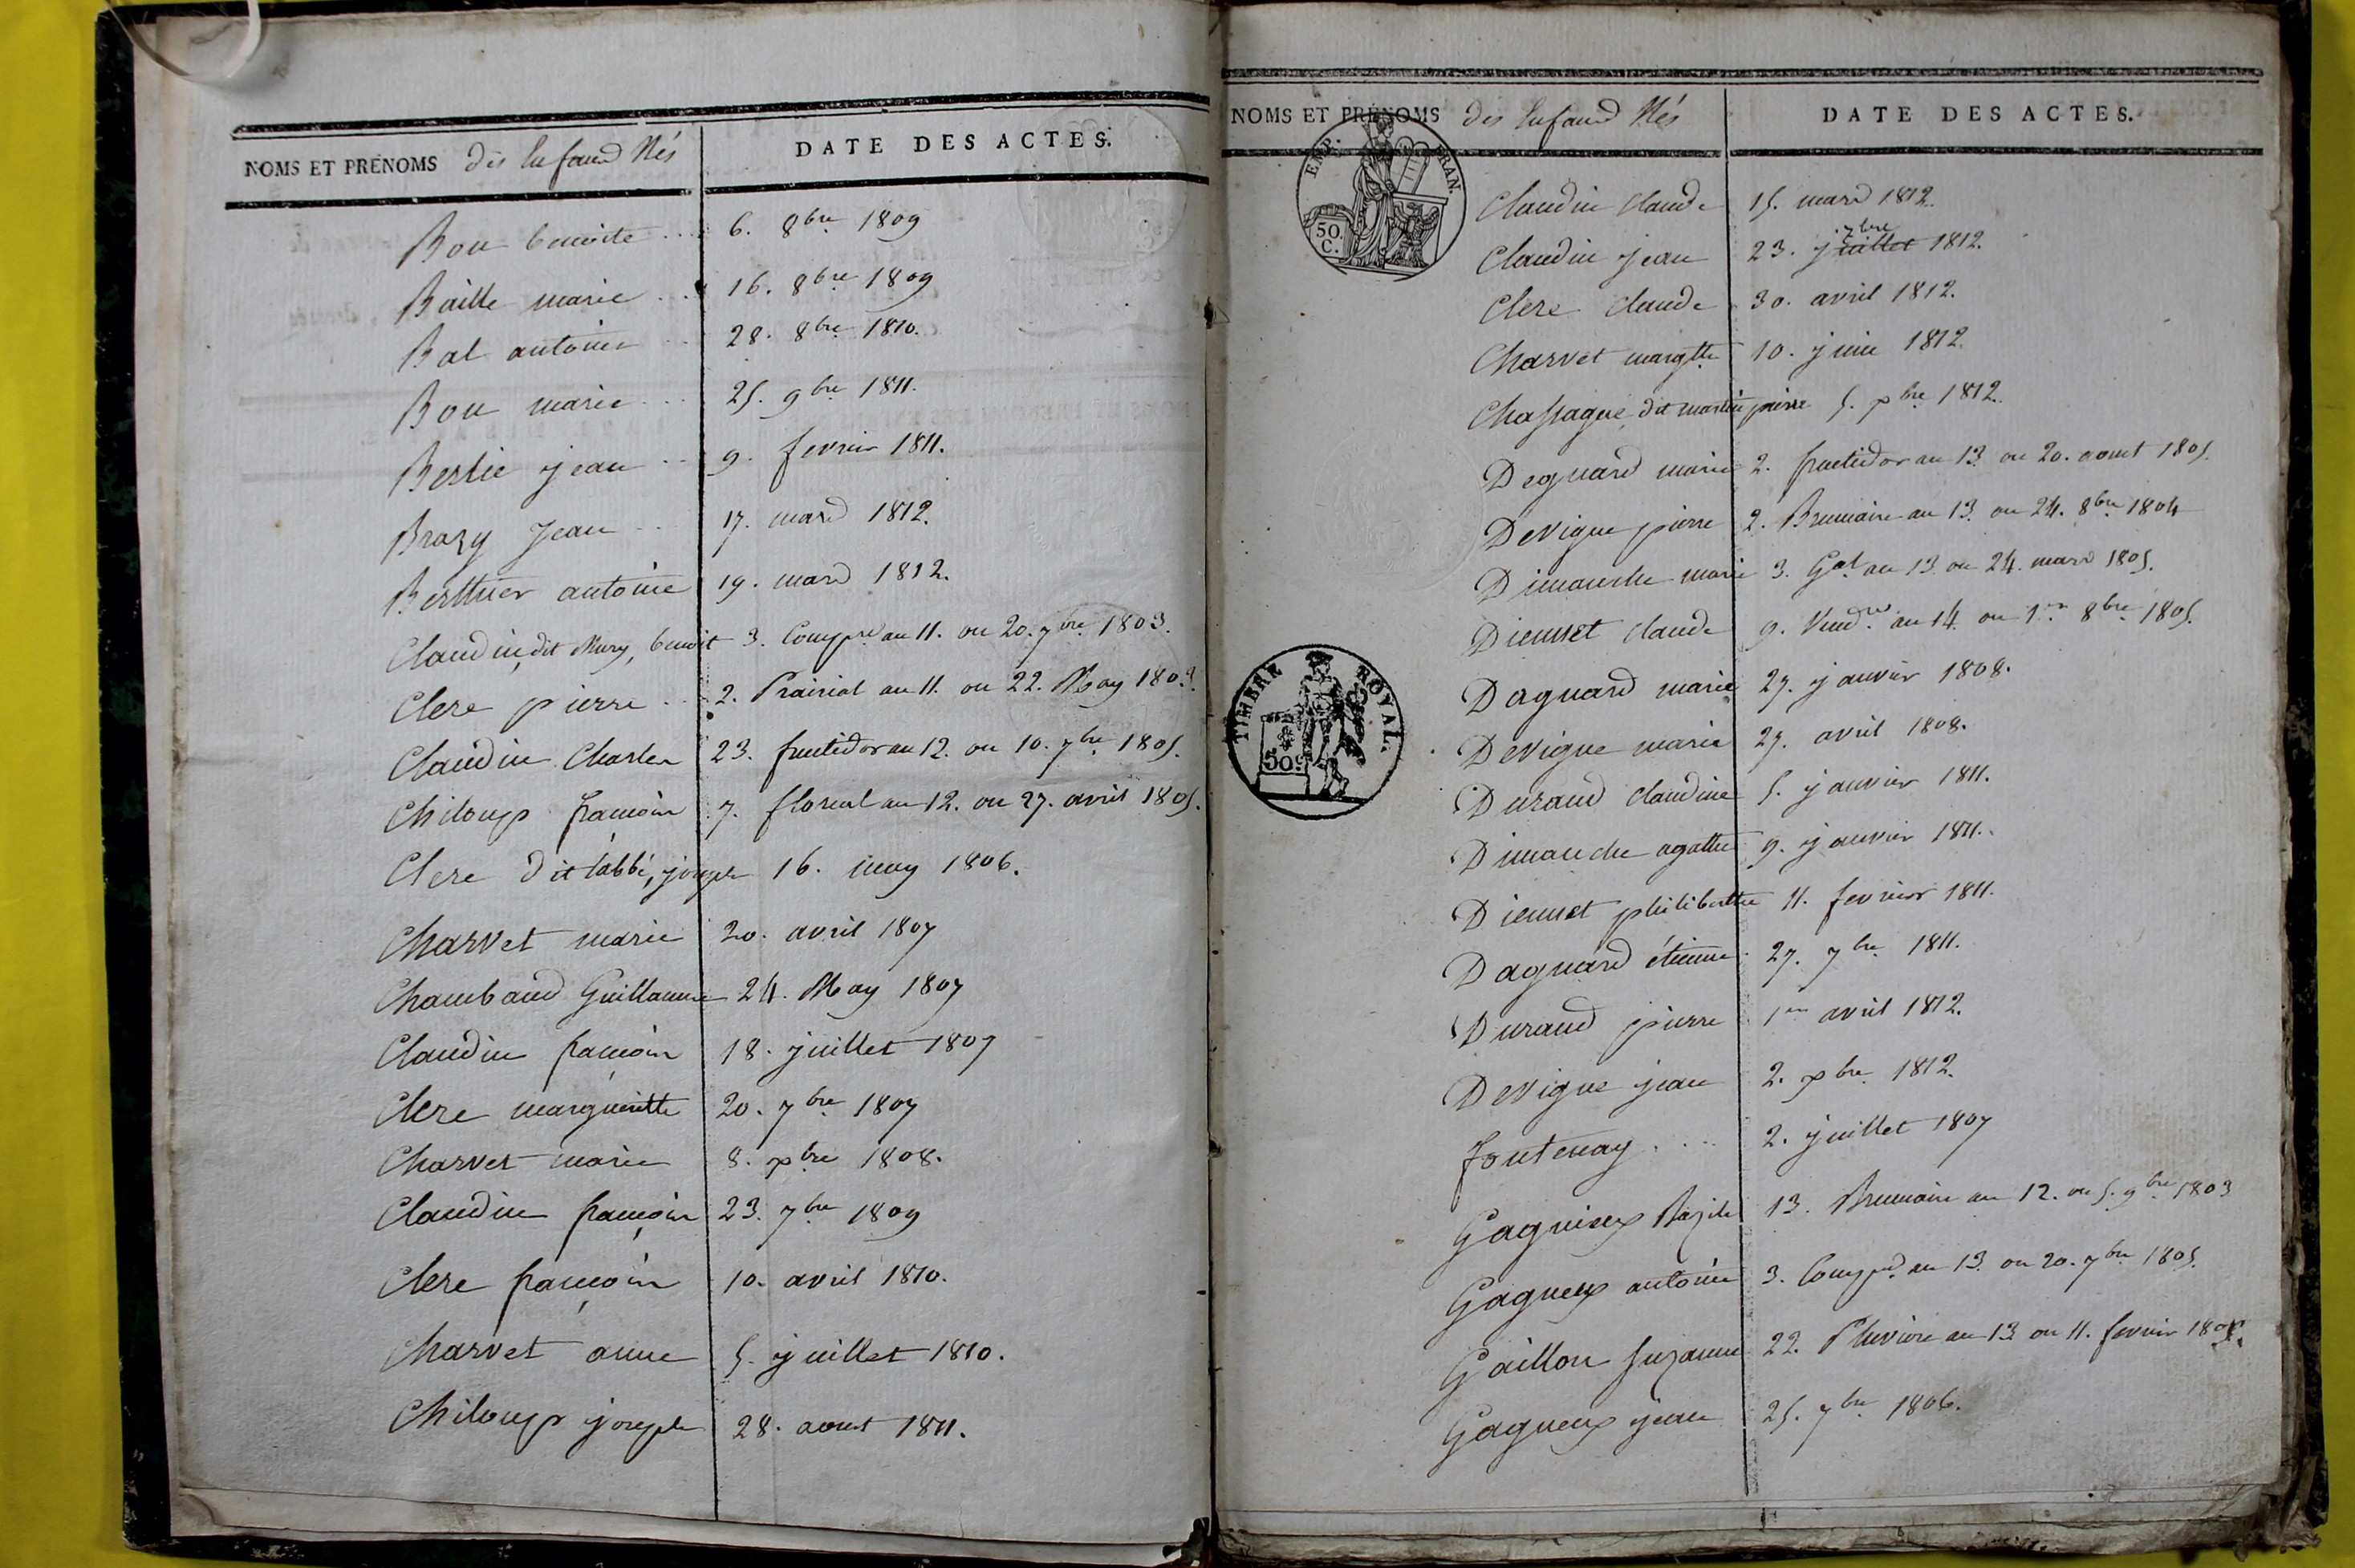 NOMS ET PRÉNOMS des Enfans Nés DATE DES ACTES.
Bon benoite ... 6. 8bre 1809
Baille marie ... 16. 8bre 1809
Bal antoine .. 28. 8bre 1810.
Bon marie ... 25. 9bre 1811.
Berlie jean .. 9. fevrier 1811.
Brazy Jean .. 17. mars 1812.
Berthier antoine 19. mars 1812.
Claudin, dit Mury, benoit 3. Compre an 11. ou 20. 7bre 1803.
Clere pierre .. 2. Prairial an 11. ou 22. May 1803.
Claudin Charles 23. fructidor an 12. ou 10. 7bre 1805.
Chiloup françois 7. floreal an 12. ou 27. avril 1805.
Clere dit l'abbé, joseph 16. may 1806.
Charvet marie 20. avril 1807
Chambaud Guillaume 24. May 1807
Claudin françois 18. juillet 1807
Clere margueritte 20. 7bre 1807
Charvet marie 8. xbre 1808.
Claudin françois 23. 7bre 1809
Clere françois 10. avril 1810.
Charvet anne 5. juillet 1810.
Chiloup joseph 28. aout 1811.
NOMS ET PRÉNOMS des Enfans Nés DATE DES ACTES.
EMP. FRAN.
50. C.
Claudin Claude 15. mars 1812.
7bre
Claudin jean 23. juillet 1812.
Clere claude 30. avril 1812.
Charvet margtte 10. juin 1812.
Chassagne, dit martin pierre 5. xbre 1812.
Deguard marie 2. fructidor an 13 ou 20. aout 1805.
Devigne pierre 2. Brumaire an 13. ou 24. 8bre 1804
Dimanche marie 3. Gal an 13 ou 24. mars 1805.
Diennet claude 9. Vendre an 14 ou 1er 8bre 1805.
TIMBRE ROYAL.
50c
Daguard marie 27. janvier 1808.
Devigne marie 27. avril 1808.
Durand claudine 5. janvier 1811.
Dimanche agathe 9. janvier 1811.
Diennet philiberthe 11. fevrier 1811.
Daguard étienne 27. 7bre 1811.
Durand pierre 1er avril 1812.
Devigne jean 2. xbre 1812.
fontenay .... 2. juillet 1807
Gagnieux Bazile 13. Brumaire an 12. ou 5. 9bre 1803
Gagneux antoine 3. Compre an 13 ou 20. 7bre 1805.
Gaillon suzanne 22. Pluviose an 13 ou 11. fevrier 1805.
Gagneux jean 25. 7bre 1806.